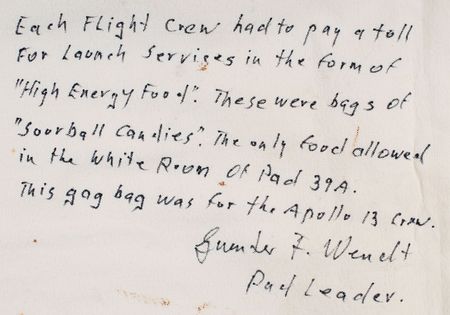 Each Flight Crew had to pay a toll
For Launch Services in the form of
"High Energy Food". These were bags of
"Sourball Candies". The only food allowed
in the White Room Of Pad 39A.
This gag bag was for the Apollo 13 Crew.
Guenter F. Wendt
Pad Leader.